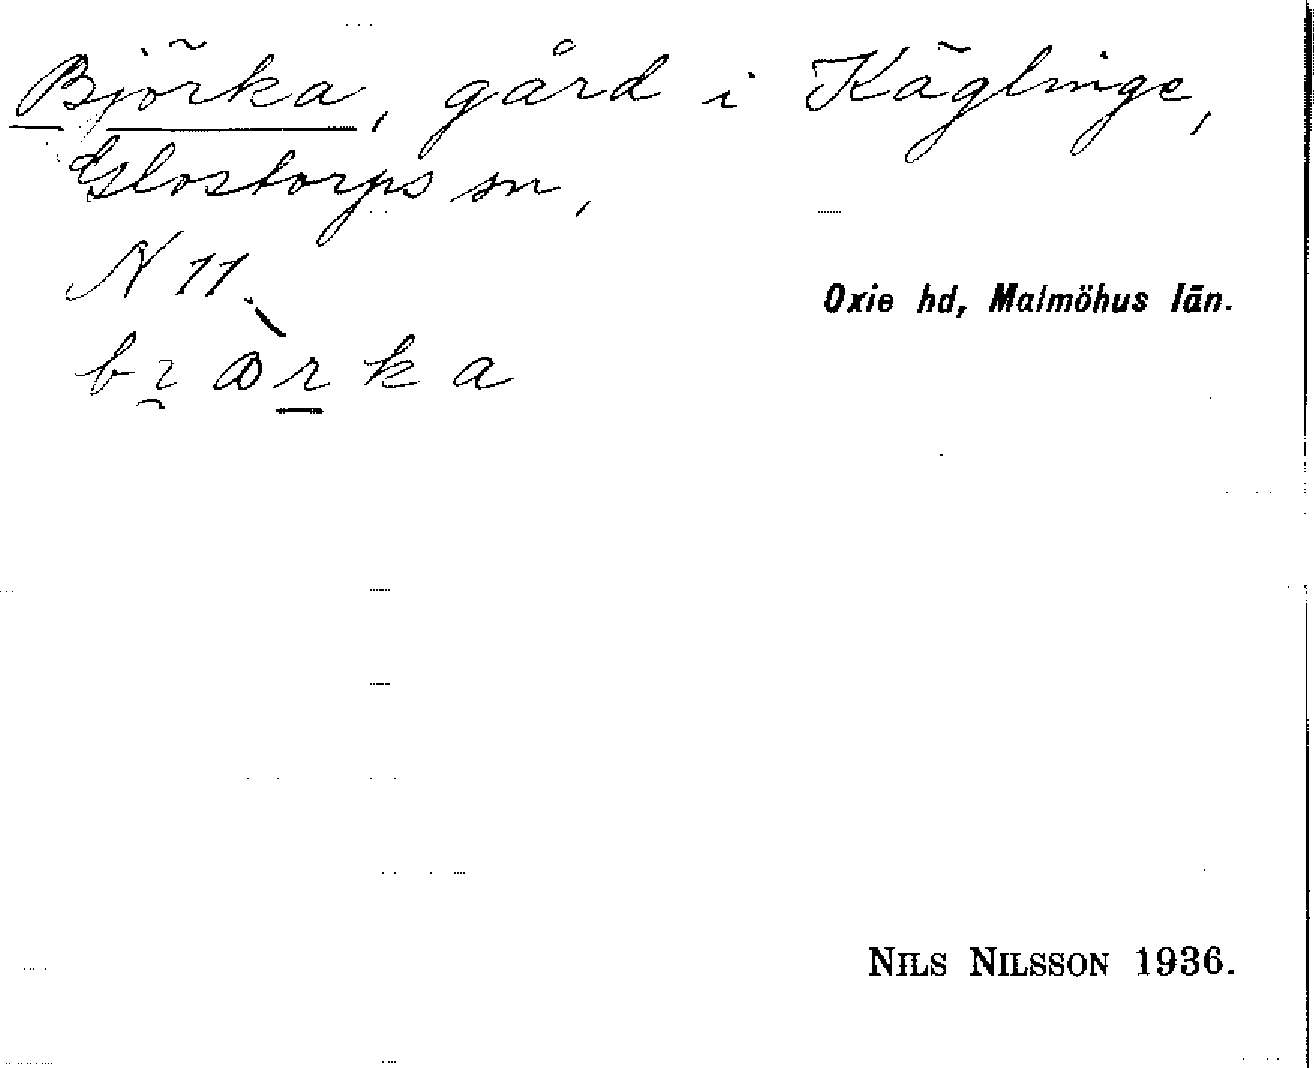 Björka, gård i Käglinge,
Glostorps sn,
N 11
Oxie hd, Malmöhus län.
NILS NILSSON 1936.